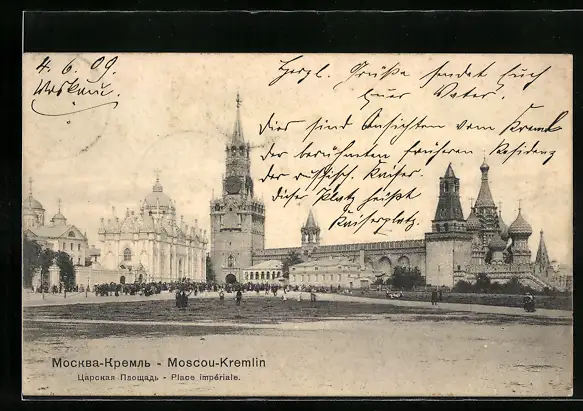 4. 6. 09.
Moskau.
Herzl. Grüße sendet Euch
Euer Vater.
Dies sind Ansichten vom Kreml
der berühmten früheren Residenz
der russisch. Kaiser.
Dieser Platz heißt
Kaiserplatz.
Москва-Кремль - Moscou-Kremlin
Царская Площадь - Place impériale.